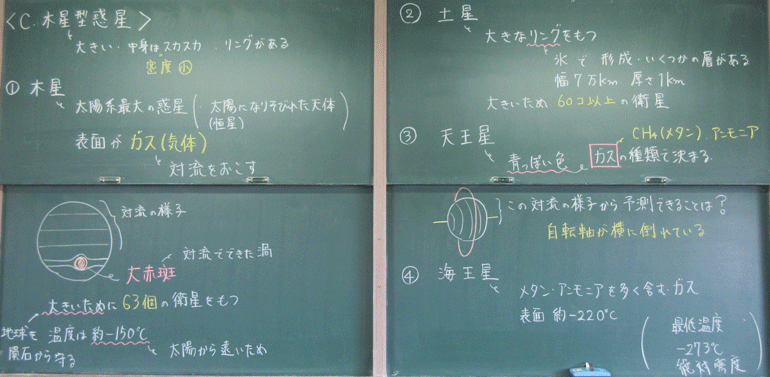 <C. 木星型惑星>
大きい・中身はスカスカ・リングがある
密度 小
① 木星
太陽系最大の惑星(・太陽になりそびれた天体)
(恒星)
表面がガス(気体)
対流をおこす
対流の様子
対流でできた渦
大赤斑
大きいために63個の衛星をもつ
地球を隕石から守る
温度は約-150℃
太陽から遠いため
② 土星
大きなリングをもつ
氷で形成・いくつかの層がある
幅7万km 厚さ1km
大きいため60コ以上の衛星
③ 天王星
CH4(メタン)、アンモニア
青っぽい色 ガスの種類で決まる
この対流の様子から予測できることは?
自転軸が横に倒れている
④ 海王星
メタン・アンモニアを多く含む・ガス
表面 約-220℃
最低温度
-273℃
絶対零度